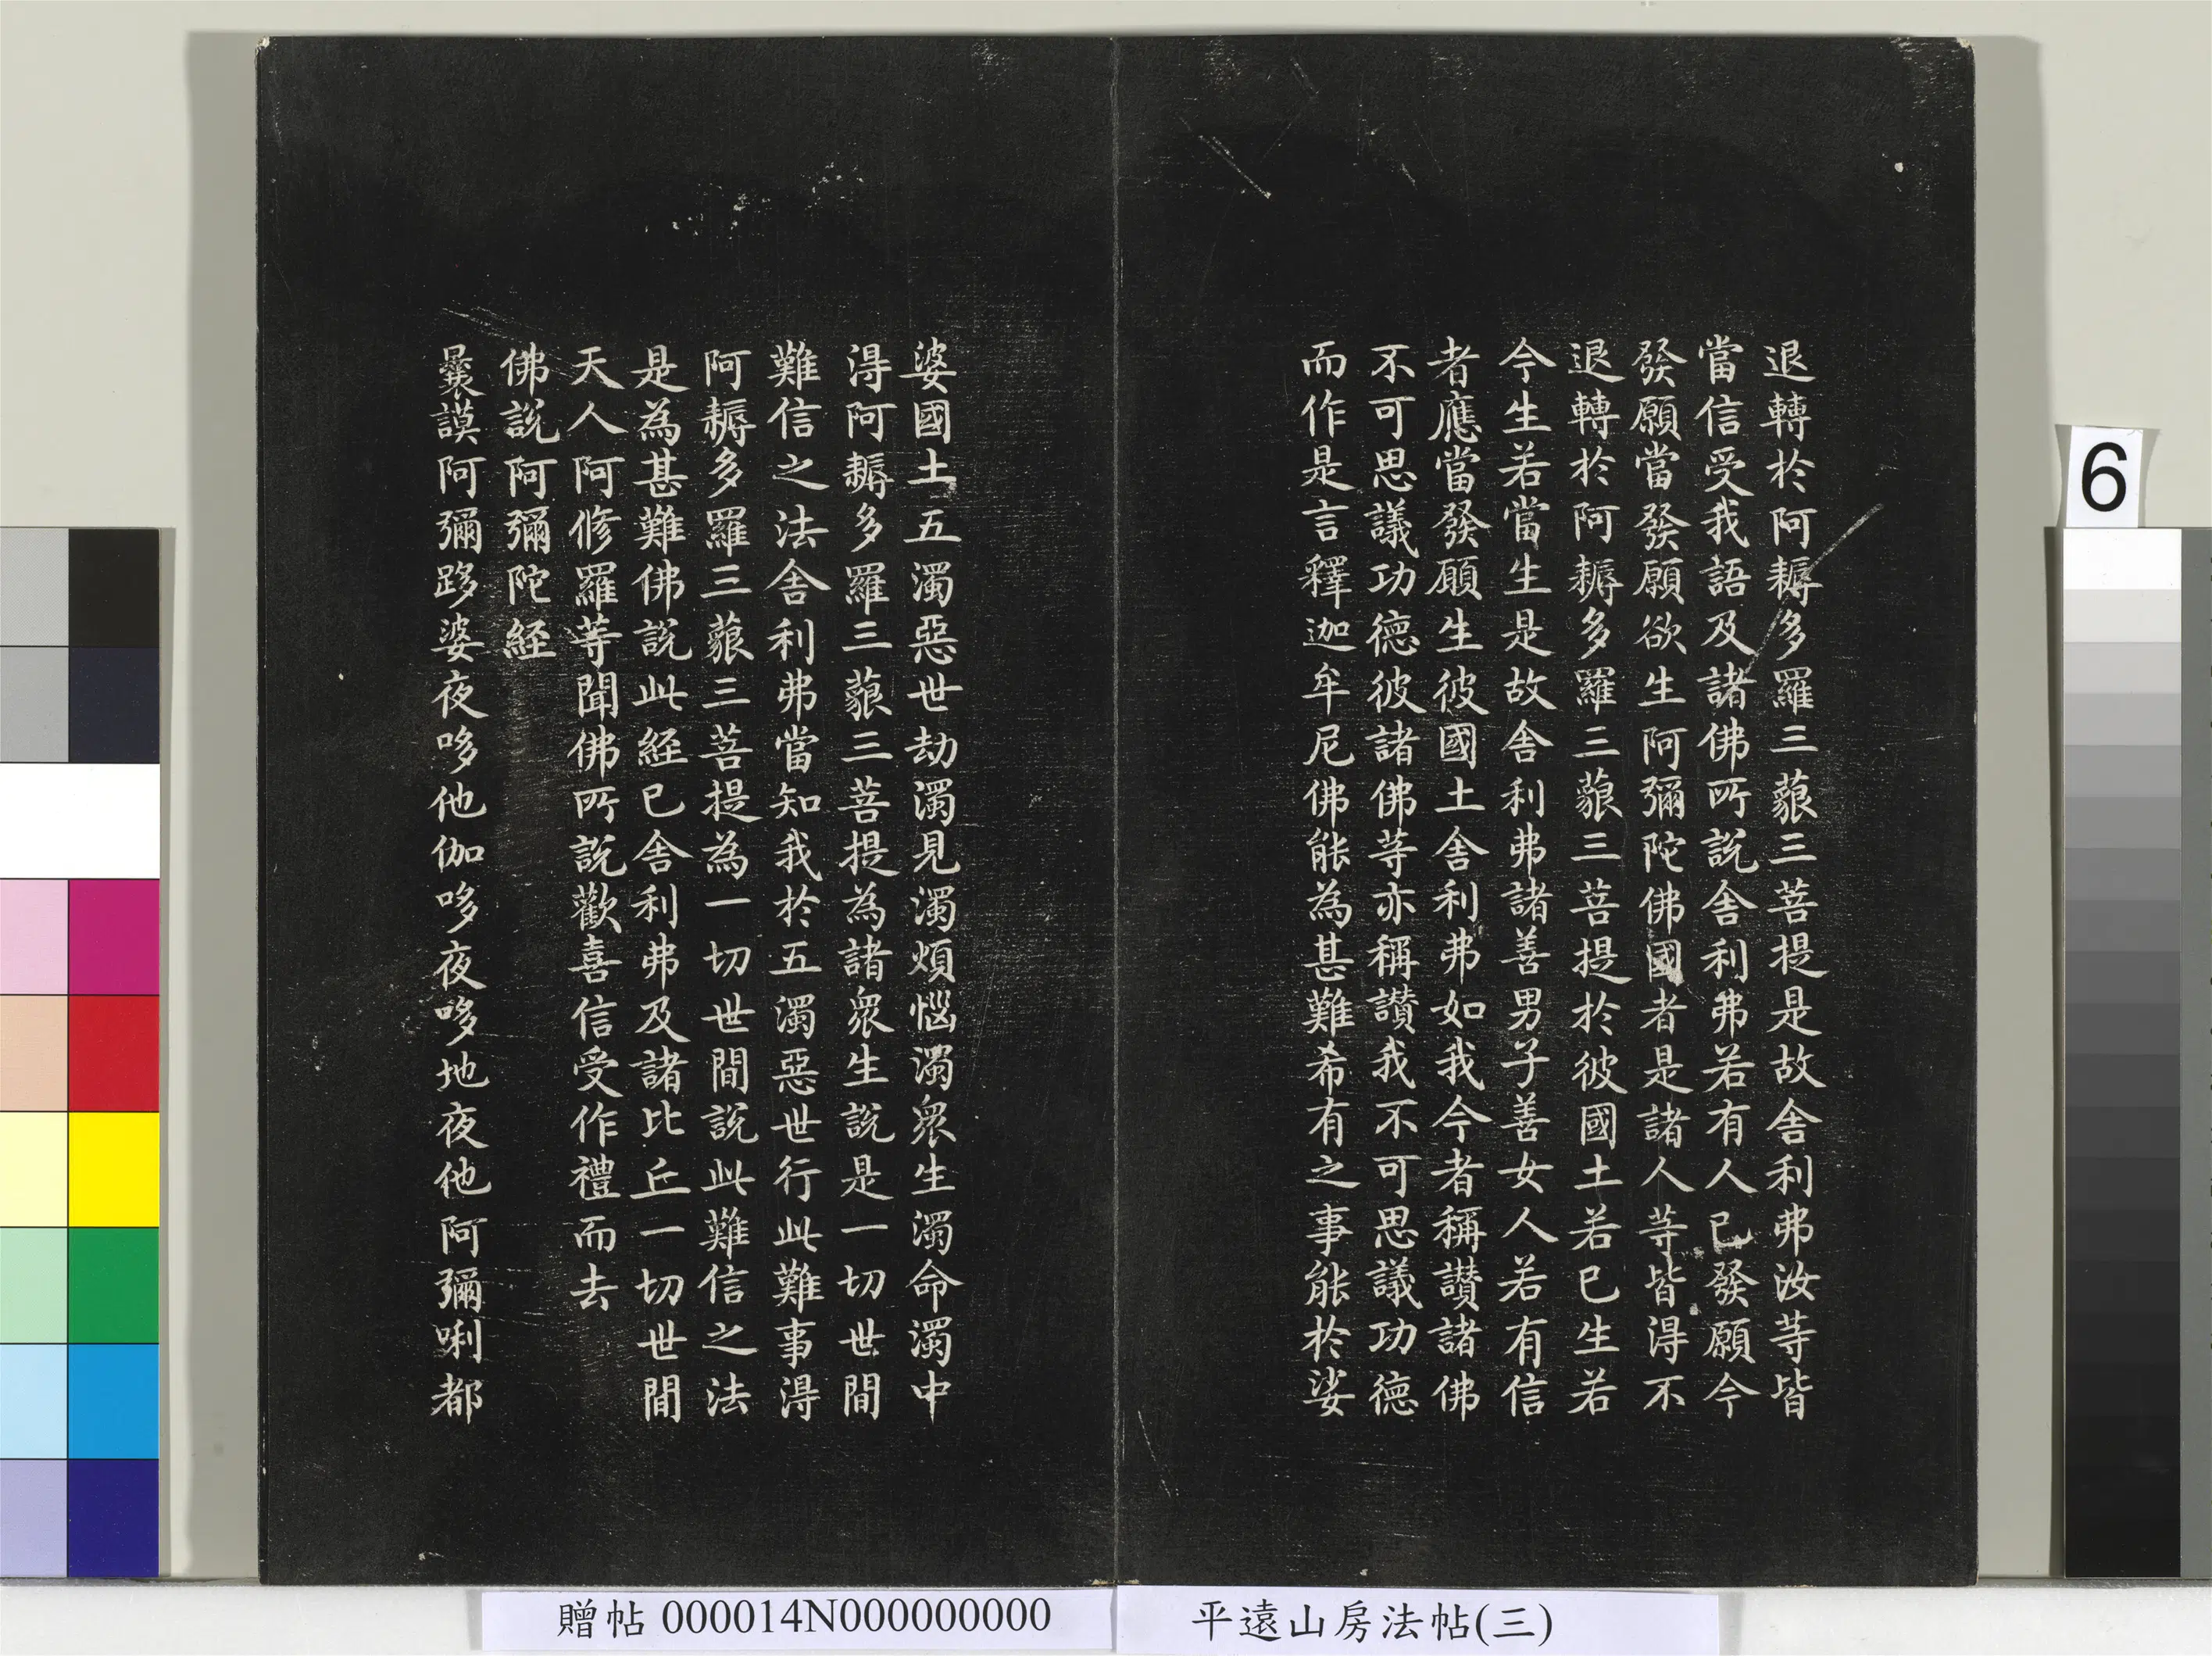 退轉於阿耨多羅三藐三菩提是故舍利弗汝等皆
當信受我語及諸佛所說舍利弗若有人已發願今
發願當發願欲生阿彌陀佛國者是諸人等皆得不
退轉於阿耨多羅三藐三菩提於彼國土若已生若
今生若當生是故舍利弗諸善男子善女人若有信
者應當發願生彼國土舍利弗如我今者稱讚諸佛
不可思議功德彼諸佛等亦稱讚我不可思議功德
而作是言釋迦牟尼佛能為甚難希有之事能於娑
婆國土五濁惡世劫濁見濁煩惱濁眾生濁命濁中
得阿耨多羅三藐三菩提為諸眾生說是一切世間
難信之法舍利弗當知我於五濁惡世行此難事得
阿耨多羅三藐三菩提為一切世間說此難信之法
是為甚難佛說此經已舍利弗及諸比丘一切世間
天人阿修羅等聞佛所說歡喜信受作禮而去
佛說阿彌陀經
曩謨阿彌跢婆夜哆他伽哆夜哆地夜他阿彌唎都
6
贈帖 000014N000000000
平遠山房法帖(三)